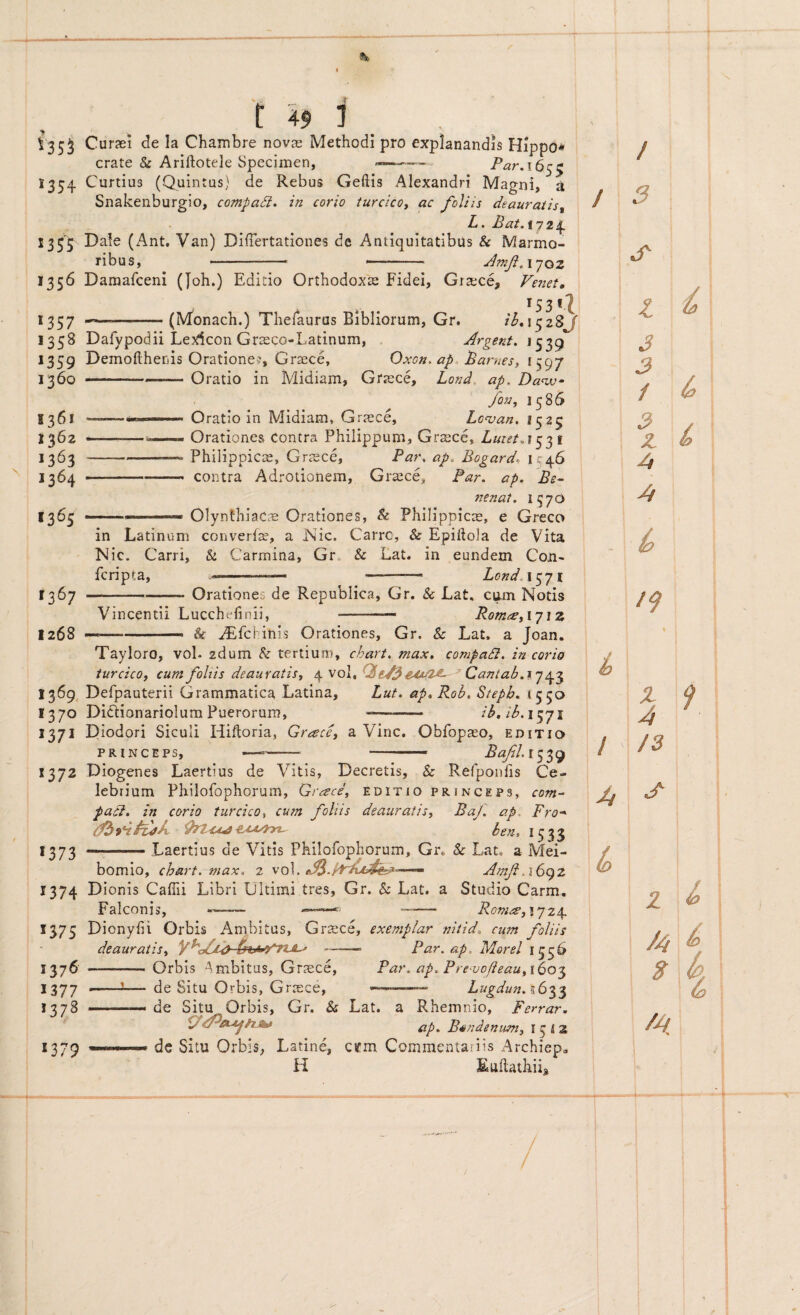 [ 49 ]
1353 Curæi de la Chambre novæ Methodi pro explanandis Hippo-
crate & Ariſtotele Specimen, —— Par. 1655 / 
1354 Curtius (Quintus) de Rebus Geſtis Alexandri Magni, a
Snakenburgio, compact. in corio turcico, ac foliis deauratis,
L. Bat. 1724 / 3
1355 Dale (Ant. Van) Diſſertationes de Antiquitatibus & Marmo-
ribus, —— —— Amſt. 1702
1356 Damaſceni (Joh.) Editio Orthodoxæ Fidei, Græcé, Venet.
1531 }
1357 —— (Monach.) Theſaurus Bibliorum, Gr. ib. 1528 } 2 6
1358 Daſypodii Lexicon Græco-Latinum, Argent. 1539 3
1359 Demoſthenis Orationes, Græcé, Oxon. ap. Barnes, 1597 3
1360 —— Oratio in Midiam, Græcé, Lond. ap. Daw-
ſon, 1586 1 6
1361 —— Oratio in Midiam, Græcé, Lovan. 1525 3
1362 —— Orationes contra Philippum, Græcé, Lutet. 1531 2 6
1363 —— Philippicæ, Græcé, Par. ap. Bogard. 1546 4
1364 —— contra Adrotionem, Græcé, Par. ap. Be-
nenat. 1570 4
1365 —— Olynthiacæ Orationes, & Philippicæ, e Greco
in Latinum converſæ, a Nic. Carrc, & Epiſtola de Vita
Nic. Carri, & Carmina, Gr. & Lat. in eundem Con-
ſcripta, —— —— Lond. 1571 6
1367 —— Orationes de Republica, Gr. & Lat. cum Notis
Vincentii Luccheſinii, —— Romæ, 1712 19
1268 —— & Æſchinis Orationes, Gr. & Lat. a Joan.
Tayloro, vol. 2dum & tertium, chart. max. compact. in corio
turcico, cum foliis deauratis, 4 vol. Cantab. 1743 6
1369 Deſpauterii Grammatica Latina, Lut. ap. Rob. Steph. 1550 2 9
1370 Dictionariolum Puerorum, —— ib. ib. 1571 4
1371 Diodori Siculi Hiſtoria, Græcé, a Vinc. Obſopæo, EDITIO
PRINCEPS, —— —— Baſil. 1539 1 13
1372 Diogenes Laertius de Vitis, Decretis, & Reſponſis Ce-
lebrium Philoſophorum, Græcé, EDITIO PRINCEPS, com-
pact. in corio turcico, cum foliis deauratis, Baſ. ap. Fro-
ben, 1533 4
1373 —— Laertius de Vitis Philoſophorum, Gr. & Lat. a Mei-
bomio, chart. max. 2 vol. —— Amſt. 1692 6
1374 Dionis Caſſii Libri Ultimi tres, Gr. & Lat. a Studio Carm.
Falconis, —— —— —— Romæ, 1724 2 6
1375 Dionyſii Orbis Ambitus, Græcé, exemplar nitid. cum foliis
deauratis, —— Par. ap. Morel 1556 14 6
1376 —— Orbis Ambitus, Græcé, Par. ap. Prevoſteau, 1603
1377 —— de Situ Orbis, Græce, —— Lugdun. 1633
1378 —— de Situ Orbis, Gr. & Lat. a Rhemnio, Ferrar.
ap. Bondenum, 1512 14
1379 —— de Situ Orbis, Latiné, cum Commentariis Archiep.
H Euſtathii,